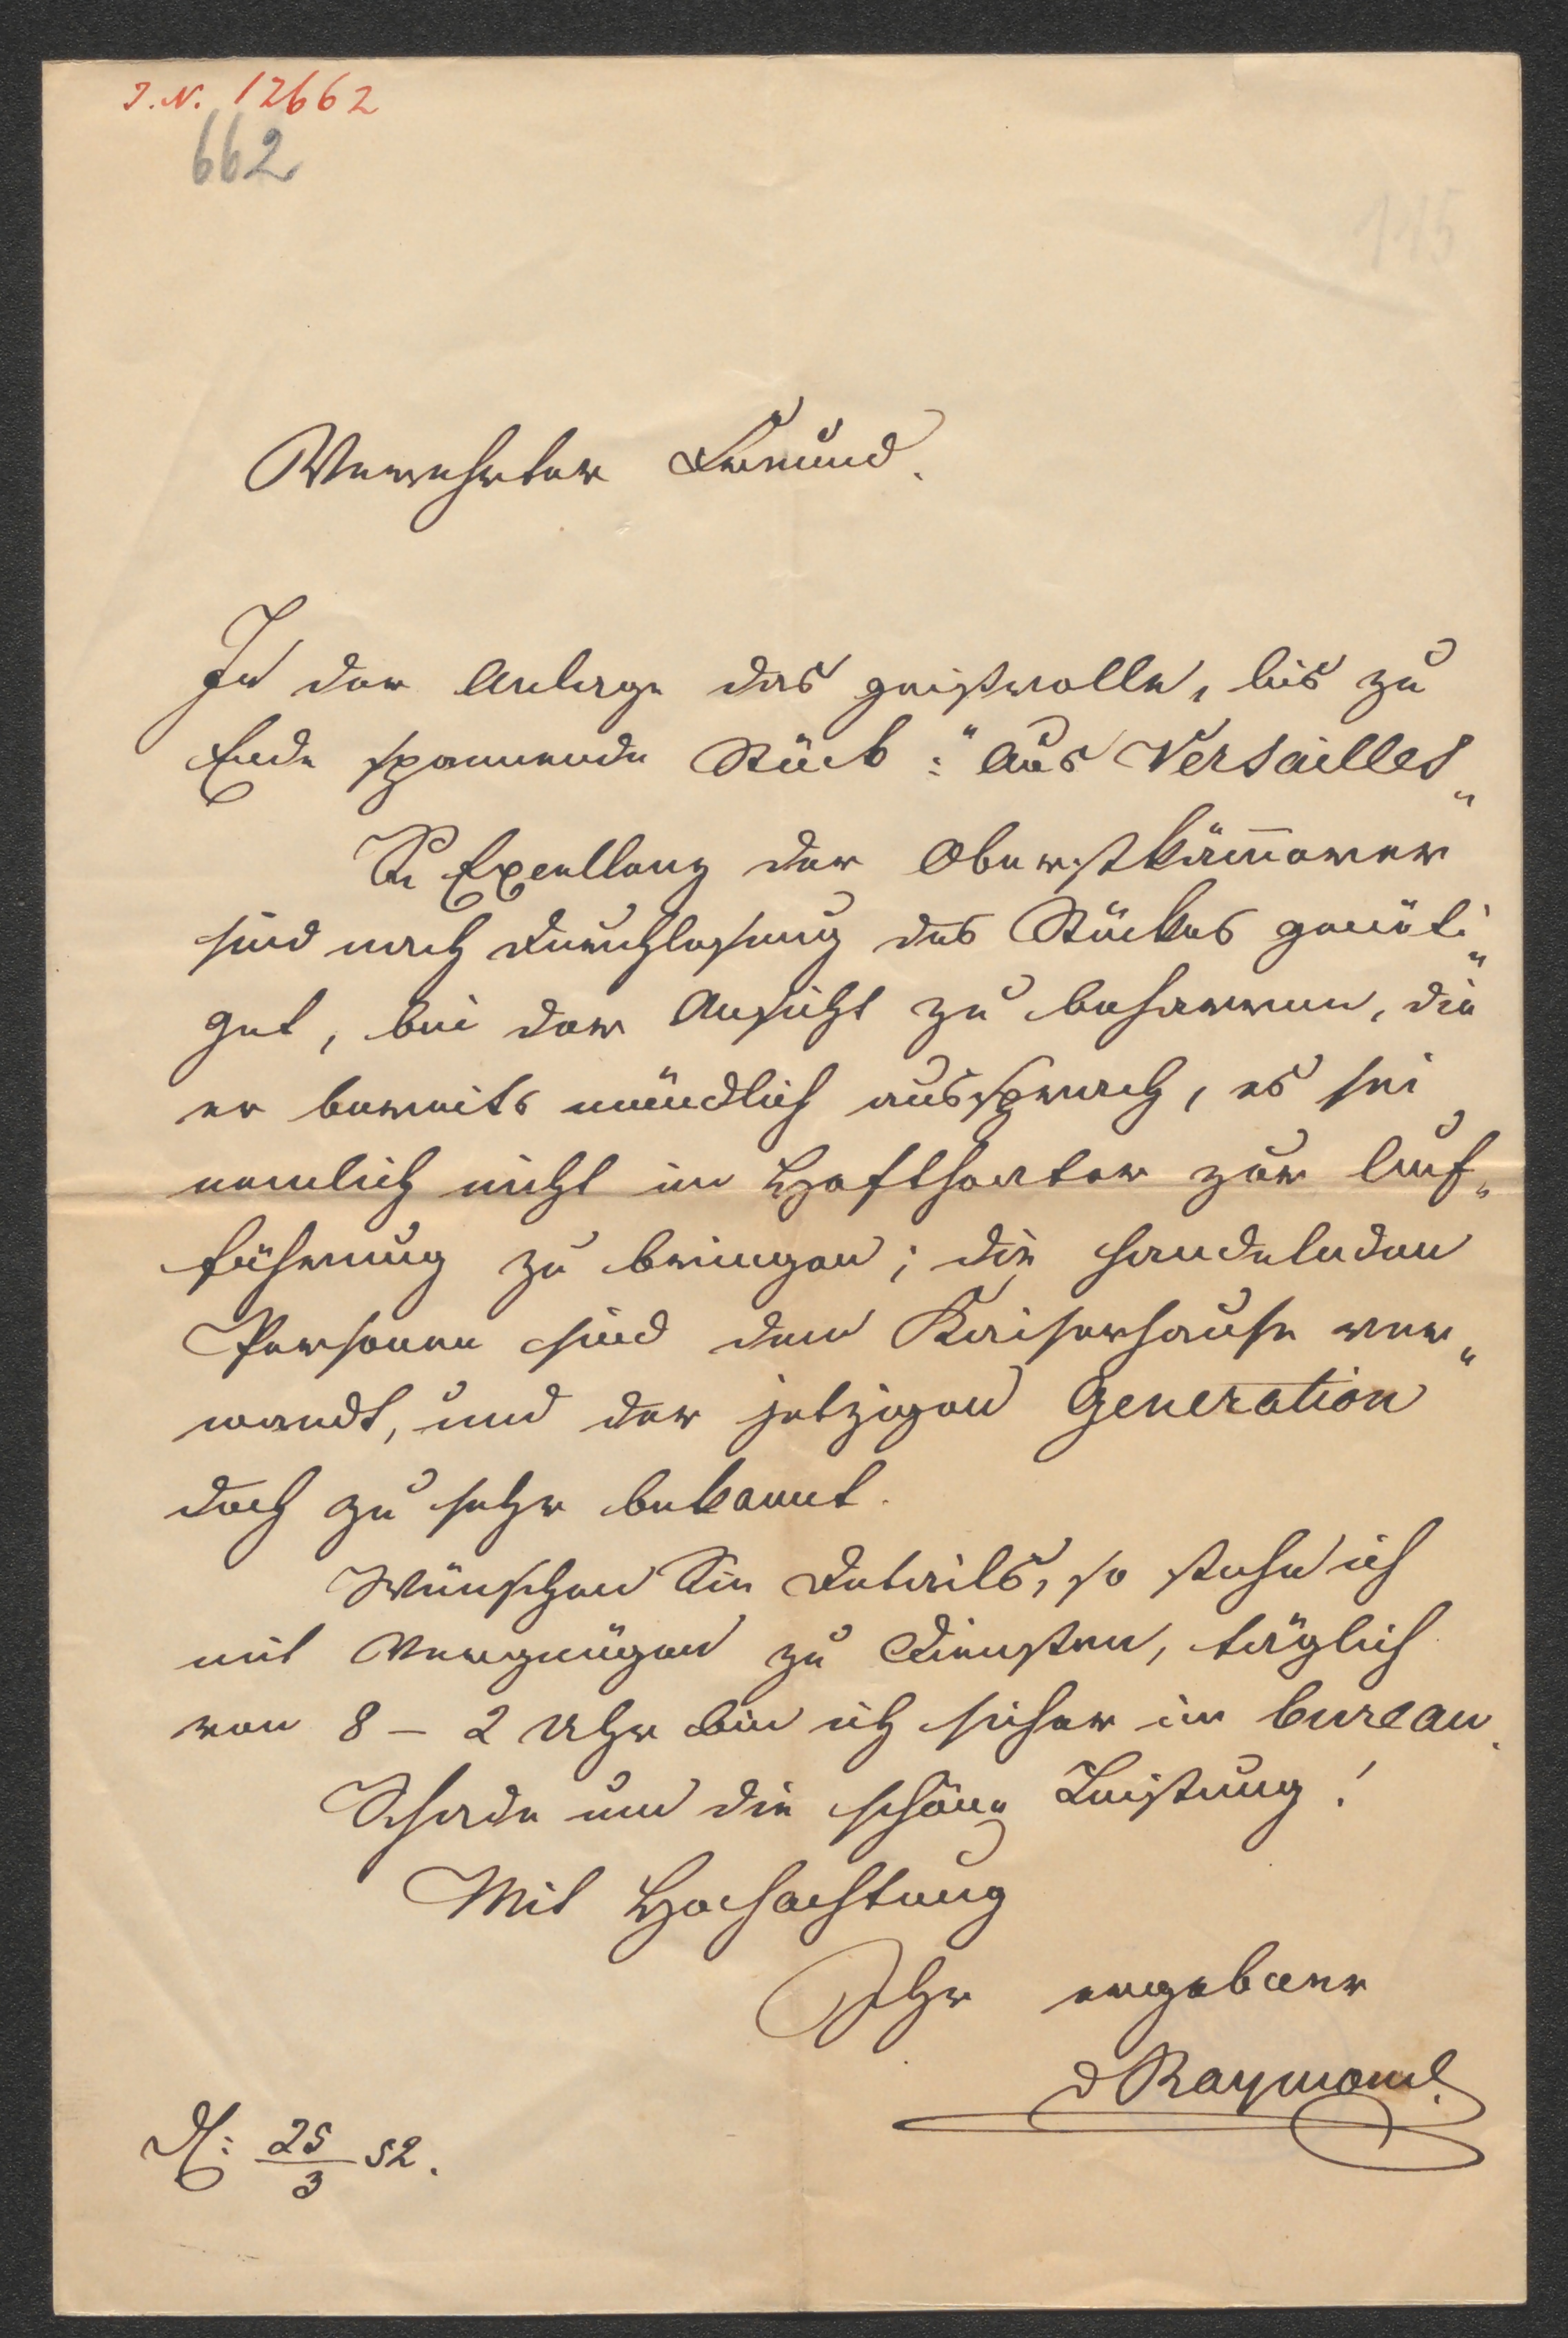 I. N. 12662
662
115
Verehrter Freund.
In der Anlage das geistvolle, bis zu
Ende spannende Stück: "Aus Versailles"
Se Exzellenz der Oberstkäm̅erer
sind nach Durchlesung des Stückes genöti„
get, bei der Ansicht zu beharren, die
er bereits mündlich aussprach, es sei
nemlich nicht im Hoftheater zur Auf„
führung zu bringen; die handelnden
Personen sind dem Kaiserhause ver„
wandt, und der jetzigen Generation
doch zu sehr bekannt.
Wünschen Sie Details, so stehe ich
mit Vergnügen zu Diensten, täglich
von 8 – 2 Uhr bin ich sicher im bureau.
Schade um die schöne Leistung!
Mit Hochachtung
Ihr ergebener
dRaymond
25/3 52.